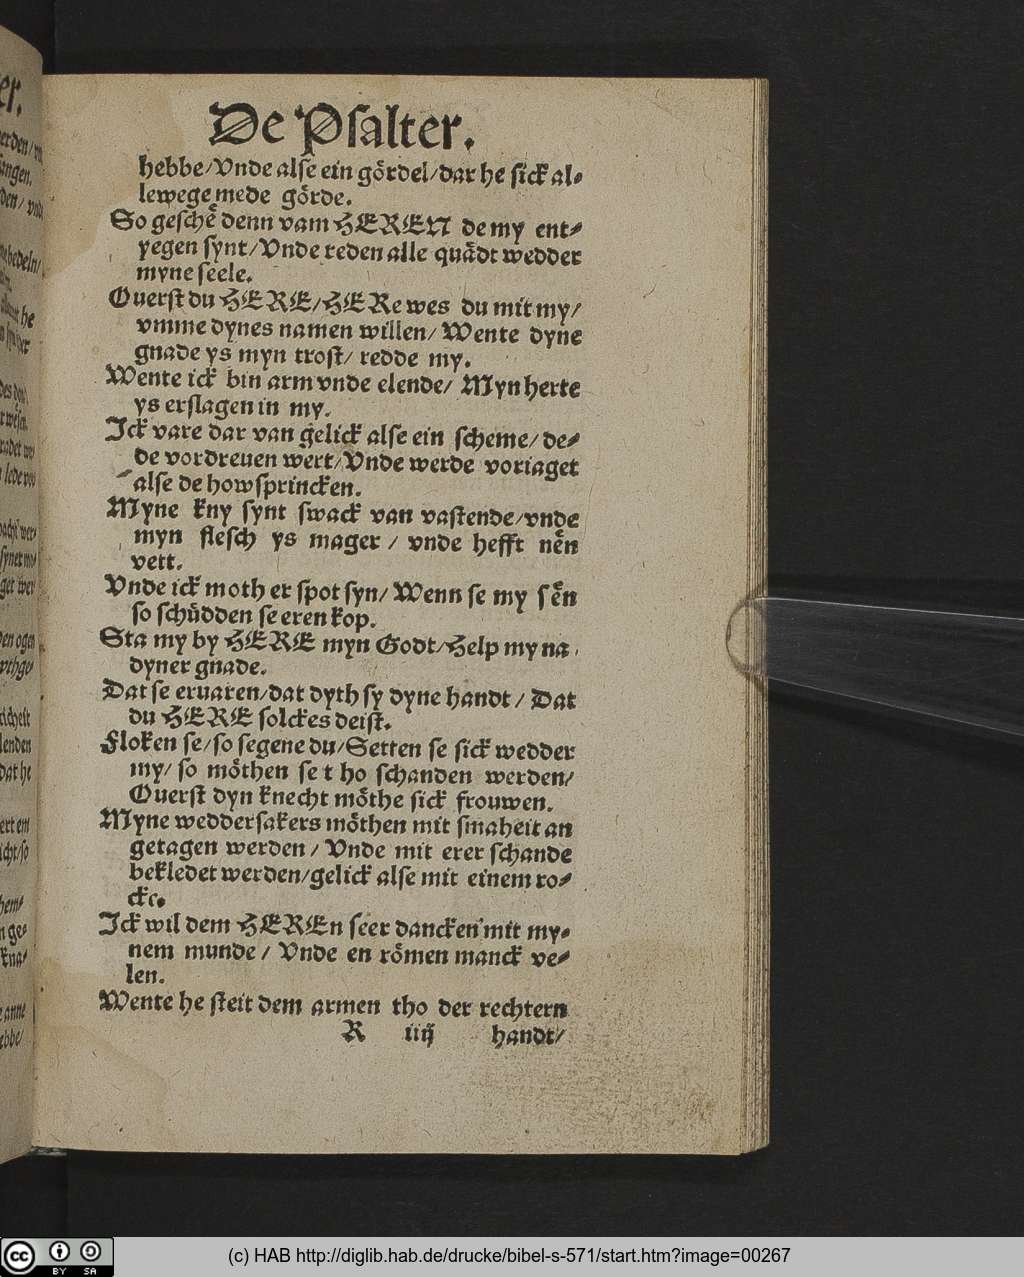 De Psalter.
hebbe/Vnde alse ein gördel/dar he sick al⸗
lewege mede görde.
So geschẽ denn vam HEREN de my ent⸗
yegen synt/Vnde reden alle quådt wedder
myne seele.
Ouerst du HERE/HERe wes du mit my/
vmme dynes namen willen/ Wente dyne
gnade ys myn trost/ redde my.
Wente ick bin arm vnde elende/ Myn herte
ys erslagen in my.
Ick vare dar van gelick alse ein scheme/ de⸗
de vordreuen wert/Vnde werde voriaget
alse de howsprincken.
Myne kny synt swack van vastende/vnde
myn flesch ys mager / vnde hefft nẽn
vett.
Vnde ick moth er spot syn/ Wenn se my sẽn
so schüdden se eren kop.
Sta my by HERE myn Godt/Help my na
dyner gnade.
Dat se eruaren/dat dyth sy dyne handt / Dat
du HERE solckes deist.
Floken se/so segene du/Setten se sick wedder
my/ so möthen se t ho schanden werden/
Ouerst dyn knecht möthe sick frouwen.
Myne weddersakers möthen mit smaheit an
getagen werden / Vnde mit erer schande
bekledet werden/gelick alse mit einem ro⸗
cke.
Ick wil dem HEREn seer dancken mit my⸗
nem munde / Vnde en römen manck ve⸗
len.
Wente he steit dem armen tho der rechtern
R iiij handt/
(c) HAB http://diglib.hab.de/drucke/bibel-s-571/start.htm?image=00267
cc BY SA